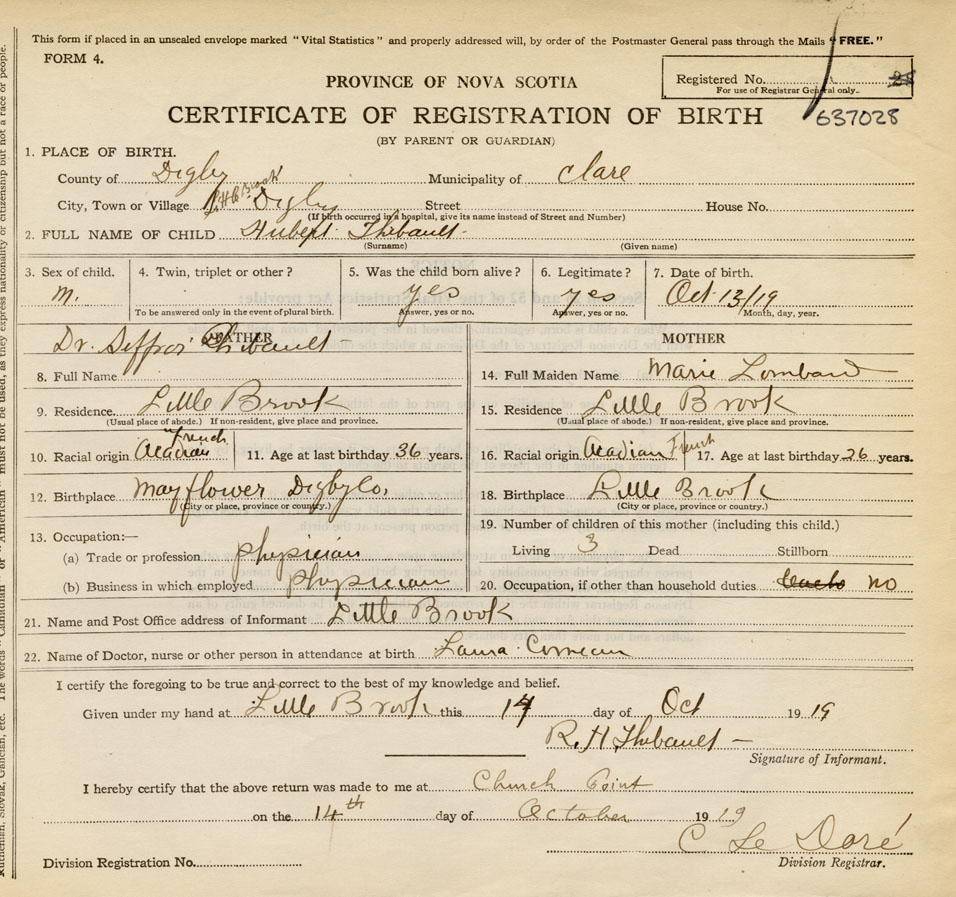 This form if placed in an unsealed envelope marked "Vital Statistics" and properly addressed will, by order of the Postmaster General pass through the Mails "FREE."
FORM 4.
PROVINCE OF NOVA SCOTIA
Registered No. 28
For use of Registrar General only.
CERTIFICATE OF REGISTRATION OF BIRTH
637028
(BY PARENT OR GUARDIAN)
1. PLACE OF BIRTH.
County of Digby Municipality of Clare
City, Town or Village Brook Digby Street House No.
(If birth occurred in a hospital, give its name instead of Street and Number)
2. FULL NAME OF CHILD Hubert Thibault
(Surname) (Given name)
3. Sex of child. 4. Twin, triplet or other? 5. Was the child born alive? 6. Legitimate? 7. Date of birth.
M. yes yes Oct 13/19
To be answered only in the event of plural birth. Answer, yes or no. Answer, yes or no. Month, day, year.
FATHER MOTHER
Dr. Thibault
8. Full Name 14. Full Maiden Name Marie Lombard
9. Residence Little Brook 15. Residence Little Brook
(Usual place of abode.) If non-resident, give place and province. (Usual place of abode.) If non-resident, give place and province.
10. Racial origin Acadian French 11. Age at last birthday 36 years. 16. Racial origin Acadian French 17. Age at last birthday 26 years.
12. Birthplace Mayflower Digby Co, 18. Birthplace Little Brook
(City or place, province or country.) (City or place, province or country.)
13. Occupation:— 19. Number of children of this mother (including this child.)
(a) Trade or profession physician Living 3 Dead Stillborn
(b) Business in which employed physician 20. Occupation, if other than household duties no
21. Name and Post Office address of Informant Little Brook
22. Name of Doctor, nurse or other person in attendance at birth Laura Comeau
I certify the foregoing to be true and correct to the best of my knowledge and belief.
Given under my hand at Little Brook this 14 day of Oct 1919
R. H Thibault
Signature of Informant.
I hereby certify that the above return was made to me at Church Point
on the 14th day of October 1919
C Le Doré
Division Registration No. Division Registrar.